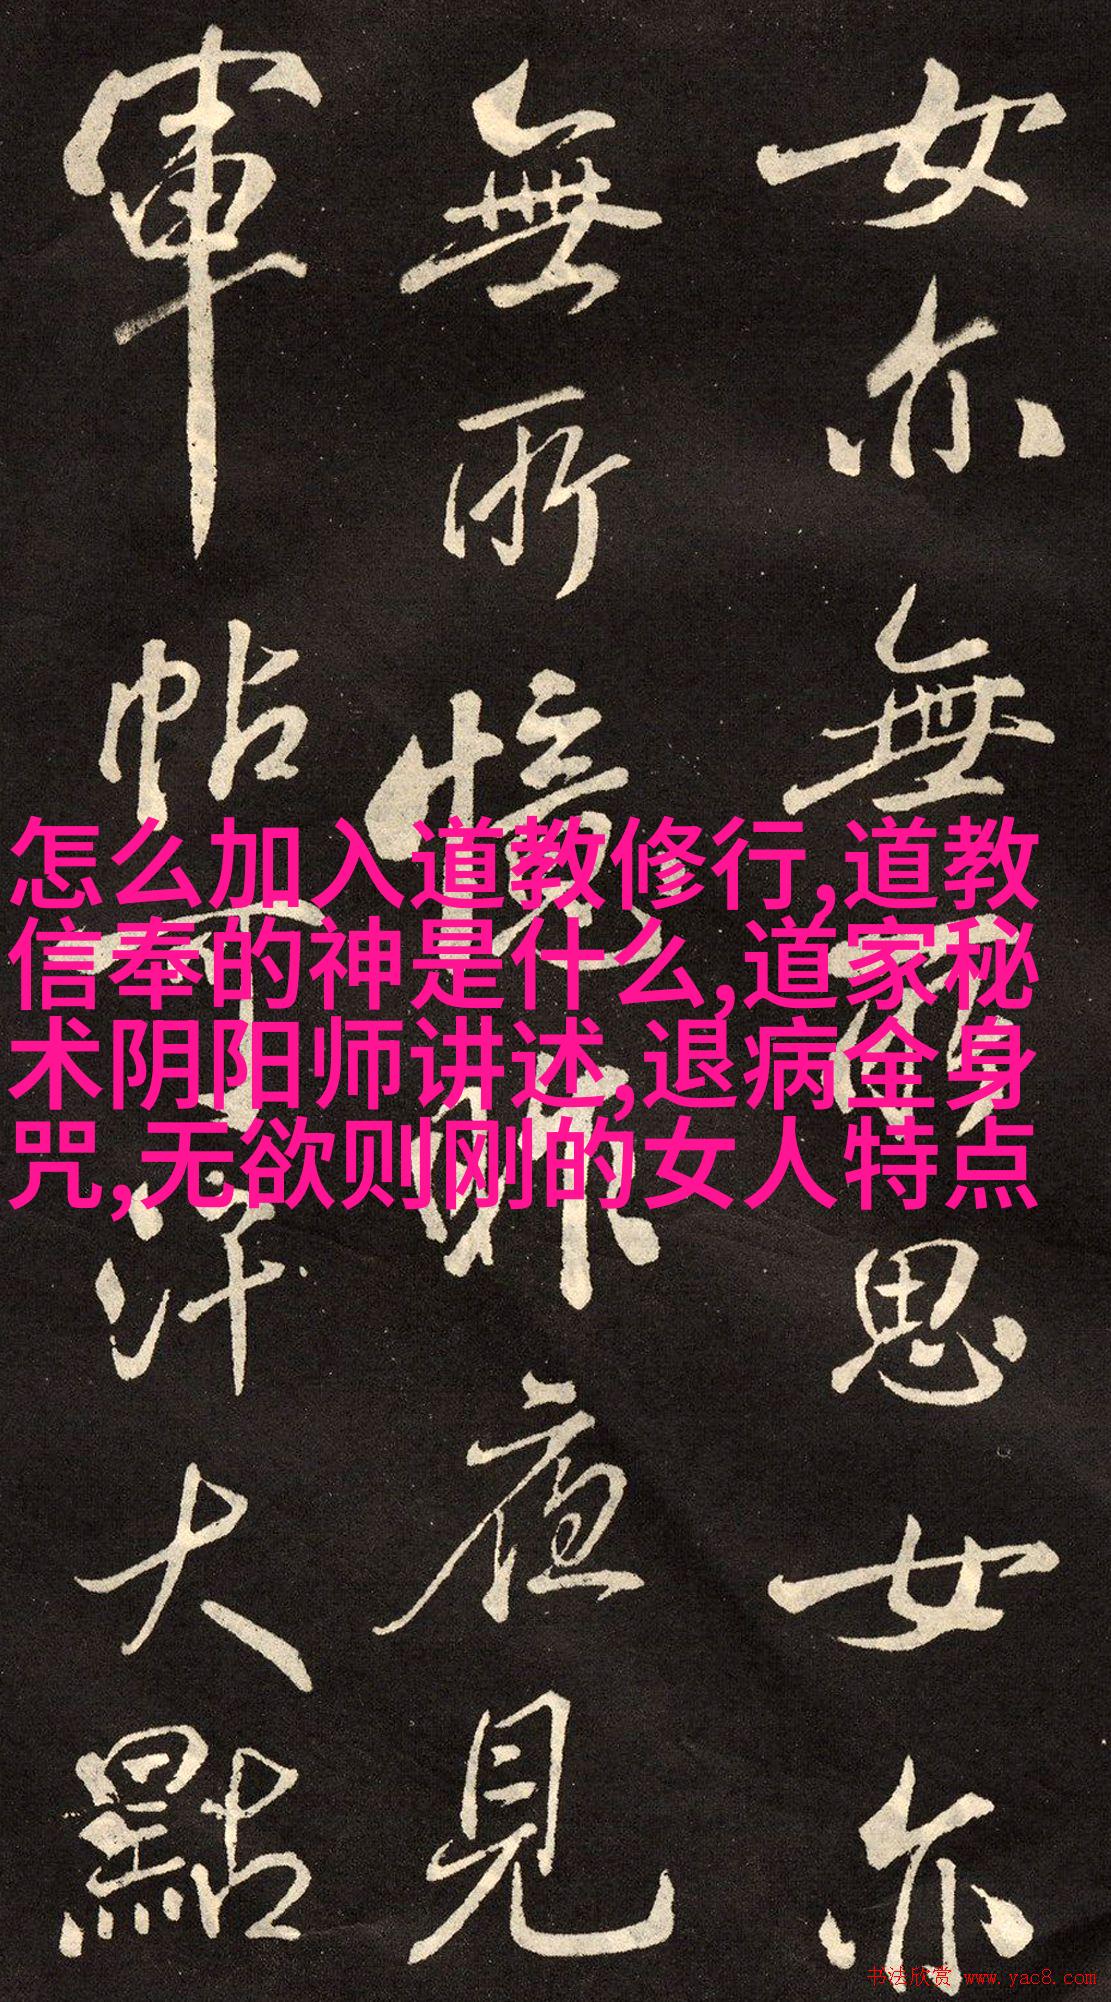 女亦無所思女亦
無所憶昨夜見
軍帖可汗大點
怎么加入道教修行,道教
信奉的神是什么,道家秘
术阴阳师讲述,退病全身
咒,无欲则刚的女人特点
书法欣赏 www.yac8.com